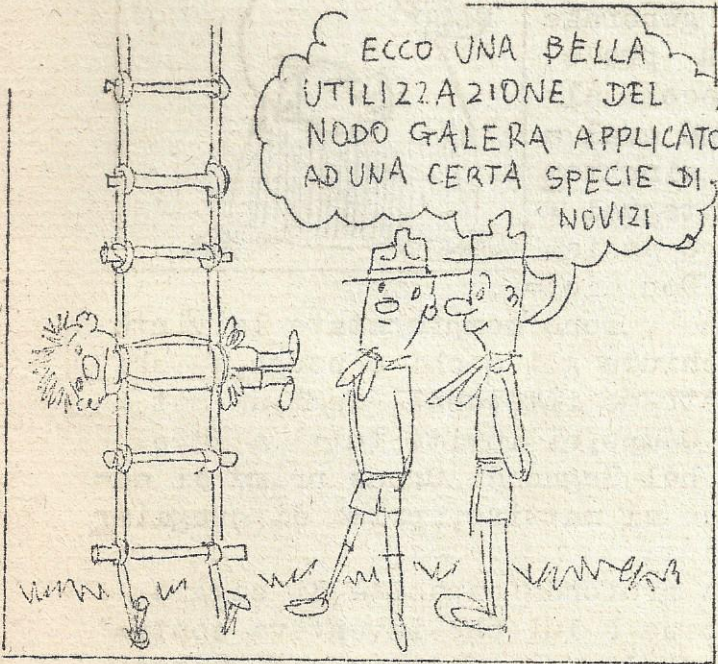 ECCO UNA BELLA
UTILIZZAZIONE DEL
NODO GALERA APPLICATO
AD UNA CERTA SPECIE DI
NOVIZI